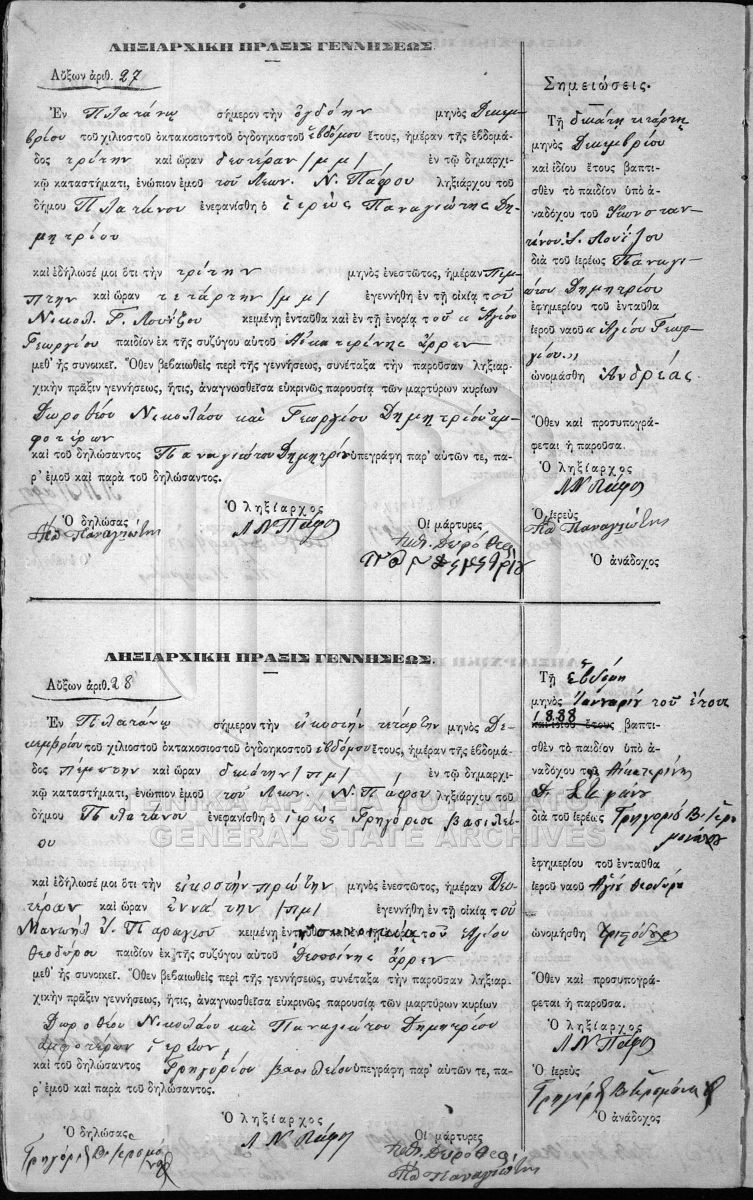 ΛΗΞΙΑΡΧΙΚΗ ΠΡΑΞΙΣ ΓΕΝΝΗΣΕΩΣ.
Αὔξων ἀριθ. 27
Ἐν Πλατάνῳ σήμερον τὴν ὀγδόην μηνὸς Δεκεμ-
βρίου τοῦ χιλιοστοῦ ὀκτακοσιοστοῦ ὀγδοηκοστοῦ ἑβδόμου ἔτους, ἡμέραν τῆς ἑβδομά-
δος τρίτην καὶ ὥραν δευτέραν /μμ/ ἐν τῷ δημαρχι-
κῷ καταστήματι, ἐνώπιον ἐμοῦ τοῦ Λεων. Ν. Πάφου ληξιάρχου τοῦ
δήμου Πλατάνου ἐνεφανίσθη ὁ ἱερεὺς Παναγιώτης Δη-
μητρίου
καὶ ἐδήλωσέ μοι ὅτι τὴν τρίτην μηνὸς ἐνεστῶτος, ἡμέραν Πέμ-
πτην καὶ ὥραν τετάρτην /μμ/ ἐγεννήθη ἐν τῇ οἰκίᾳ τοῦ
Νικολ. Γ. Λούζου κειμένῃ ἐνταῦθα καὶ ἐν τῇ ἐνορίᾳ τοῦ Ἁγίου
Γεωργίου παιδίον ἐκ τῆς συζύγου αὐτοῦ Αἰκατερίνης ἄρρεν
μεθ' ἧς συνοικεῖ. Ὅθεν βεβαιωθεὶς περὶ τῆς γεννήσεως, συνέταξα τὴν παροῦσαν ληξιαρ-
χικὴν πρᾶξιν γεννήσεως, ἥτις, ἀναγνωσθεῖσα εὐκρινῶς παρουσίᾳ τῶν μαρτύρων κυρίων
Δωροθέου Νικολάου καὶ Γεωργίου Δημητρίου ἀμ-
φοτέρων
καὶ τοῦ δηλώσαντος Παναγιώτου Δημητρίου ὑπεγράφη παρ' αὐτῶν τε, πα-
ρ' ἐμοῦ καὶ παρὰ τοῦ δηλώσαντος.
Ὁ δηλώσας Ὁ ληξίαρχος Οἱ μάρτυρες
Πα Παναγιώτης Λ Ν Πάφος
Σημειώσεις.
Τῇ δεκάτῃ τετάρτῃ
μηνὸς Δεκεμβρίου
καὶ ἰδίου ἔτους βαπτι-
σθὲν τὸ παιδίον ὑπὸ ἀ-
ναδόχου τοῦ Κωνσταν-
τίνου Λούζου
διὰ τοῦ ἱερέως Παναγι-
ώτου Δημητρίου
ἐφημερίου τοῦ ἐνταῦθα
ἱεροῦ ναοῦ Ἁγίου Γεωρ-
γίου
ὠνομάσθη Ἀνδρέας.
Ὅθεν καὶ προσυπογρά-
φεται ἡ παροῦσα.
Ὁ ληξίαρχος
Λ Ν Πάφος
Ὁ ἱερεὺς
Πα Παναγιώτης
Ὁ ἀνάδοχος
ΛΗΞΙΑΡΧΙΚΗ ΠΡΑΞΙΣ ΓΕΝΝΗΣΕΩΣ.
Αὔξων ἀριθ. 28
Ἐν Πλατάνῳ σήμερον τὴν εἰκοστὴν τετάρτην μηνὸς Δε-
κεμβρίου τοῦ χιλιοστοῦ ὀκτακοσιοστοῦ ὀγδοηκοστοῦ ἑβδόμου ἔτους, ἡμέραν τῆς ἑβδομά-
δος πέμπτην καὶ ὥραν δεκάτην /πμ/ ἐν τῷ δημαρχι-
κῷ καταστήματι, ἐνώπιον ἐμοῦ τοῦ Λεων. Ν. Πάφου ληξιάρχου τοῦ
δήμου Πλατάνου ἐνεφανίσθη ὁ ἱερεὺς Γρηγόριος Βασιλεί-
ου
καὶ ἐδήλωσέ μοι ὅτι τὴν εἰκοστὴν πρώτην μηνὸς ἐνεστῶτος, ἡμέραν Δευ-
τέραν καὶ ὥραν ἐννάτην /πμ/ ἐγεννήθη ἐν τῇ οἰκίᾳ τοῦ
Μανωὴλ κειμένῃ ἐν τοῦ Ἁγίου
Θεοδώρου παιδίον ἐκ τῆς συζύγου αὐτοῦ Δεσποίνης ἄρρεν
μεθ' ἧς συνοικεῖ. Ὅθεν βεβαιωθεὶς περὶ τῆς γεννήσεως, συνέταξα τὴν παροῦσαν ληξιαρ-
χικὴν πρᾶξιν γεννήσεως, ἥτις, ἀναγνωσθεῖσα εὐκρινῶς παρουσίᾳ τῶν μαρτύρων κυρίων
Δωροθέου Νικολάου καὶ Παναγιώτου Δημητρίου
ἀμφοτέρων ἱερέων
καὶ τοῦ δηλώσαντος Γρηγορίου Βασιλείου ὑπεγράφη παρ' αὐτῶν τε, πα-
ρ' ἐμοῦ καὶ παρὰ τοῦ δηλώσαντος.
Ὁ δηλώσας Ὁ ληξίαρχος Οἱ μάρτυρες
Λ Ν Πάφος
Πα Παναγιώτης
Τῇ ἑβδόμῃ
μηνὸς Ἰανναρίου τοῦ ἔτους
1888
καὶ ἰδίου ἔτους βαπτι-
σθὲν τὸ παιδίον ὑπὸ ἀ-
ναδόχου τῆς Αἰκατερίνης
διὰ τοῦ ἱερέως Γρηγορίου Β. Ἱερο-
μονάχου
ἐφημερίου τοῦ ἐνταῦθα
ἱεροῦ ναοῦ Ἁγίου Θεοδώρου
ὠνομάσθη
Ὅθεν καὶ προσυπογρά-
φεται ἡ παροῦσα.
Ὁ ληξίαρχος
Λ Ν Πάφος
Ὁ ἱερεὺς
Ὁ ἀνάδοχος
ΓΕΝΙΚΑ ΑΡΧΕΙΑ ΤΟΥ ΚΡΑΤΟΥΣ
GENERAL STATE ARCHIVES